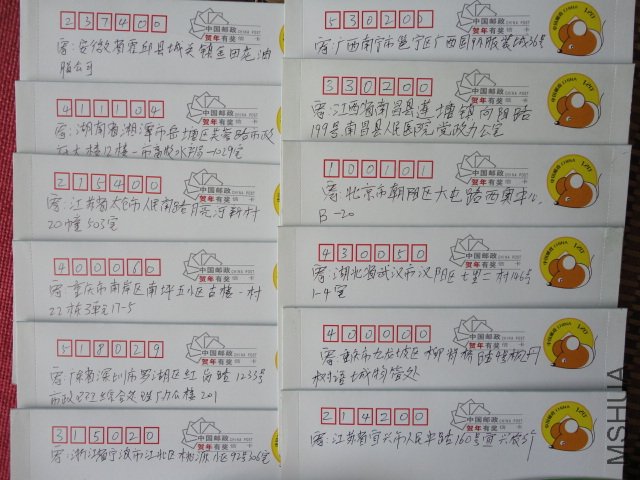 237400
中国邮政
CHINA POST
贺年有奖信卡
寄:安徽省霍邱县城关镇金田克油
服公司
411104
中国邮政
CHINA POST
贺年有奖信卡
寄:湖南省湘潭市岳塘区芙蓉路市政
府大楼12楼一市畜牧水产局一1029室
215400
中国邮政
CHINA POST
贺年有奖信卡
寄:江苏省太仓市人民南路月亮河新村
20幢503室
400060
中国邮政
CHINA POST
贺年有奖信卡
寄:重庆市南岸区南坪五小区古楼一村
22栋3单元17-5
518029
中国邮政
CHINA POST
贺年有奖信卡
寄:广东省深圳市罗湖区红岗路1233号
市政 综合 办公楼201
315020
中国邮政
CHINA POST
贺年有奖信卡
寄:浙江省宁波市江北区桃源小区92号306室
530201
中国邮政
CHINA POST
贺年有奖信卡
寄:广西南宁市邕宁区广西 服装城36号
330200
中国邮政
CHINA POST
贺年有奖信卡
寄:江西省南昌县莲塘镇向阳路
199号南昌县人民医院党政办公室
100101
中国邮政
CHINA POST
贺年有奖信卡
寄:北京市朝阳区大屯路西奥中心
B-20
430050
中国邮政
CHINA POST
贺年有奖信卡
寄:湖北省武汉市汉阳区七里二村146号
1-4室
400000
中国邮政
CHINA POST
贺年有奖信卡
寄:重庆市九龙坡区杨
城物管处
214200
中国邮政
CHINA POST
贺年有奖信卡
寄:江苏省宜兴市人民中路160号宜兴
MSHUA